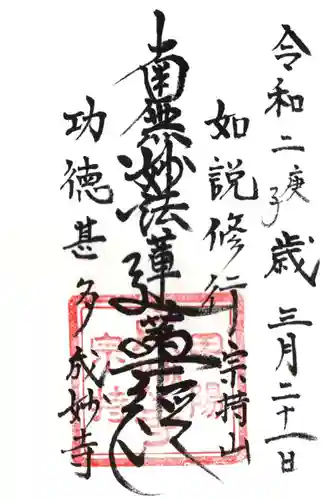 令和二庚子歳三月二十一日
如説修行宗持山
南無妙法蓮華経
功徳甚多成妙寺